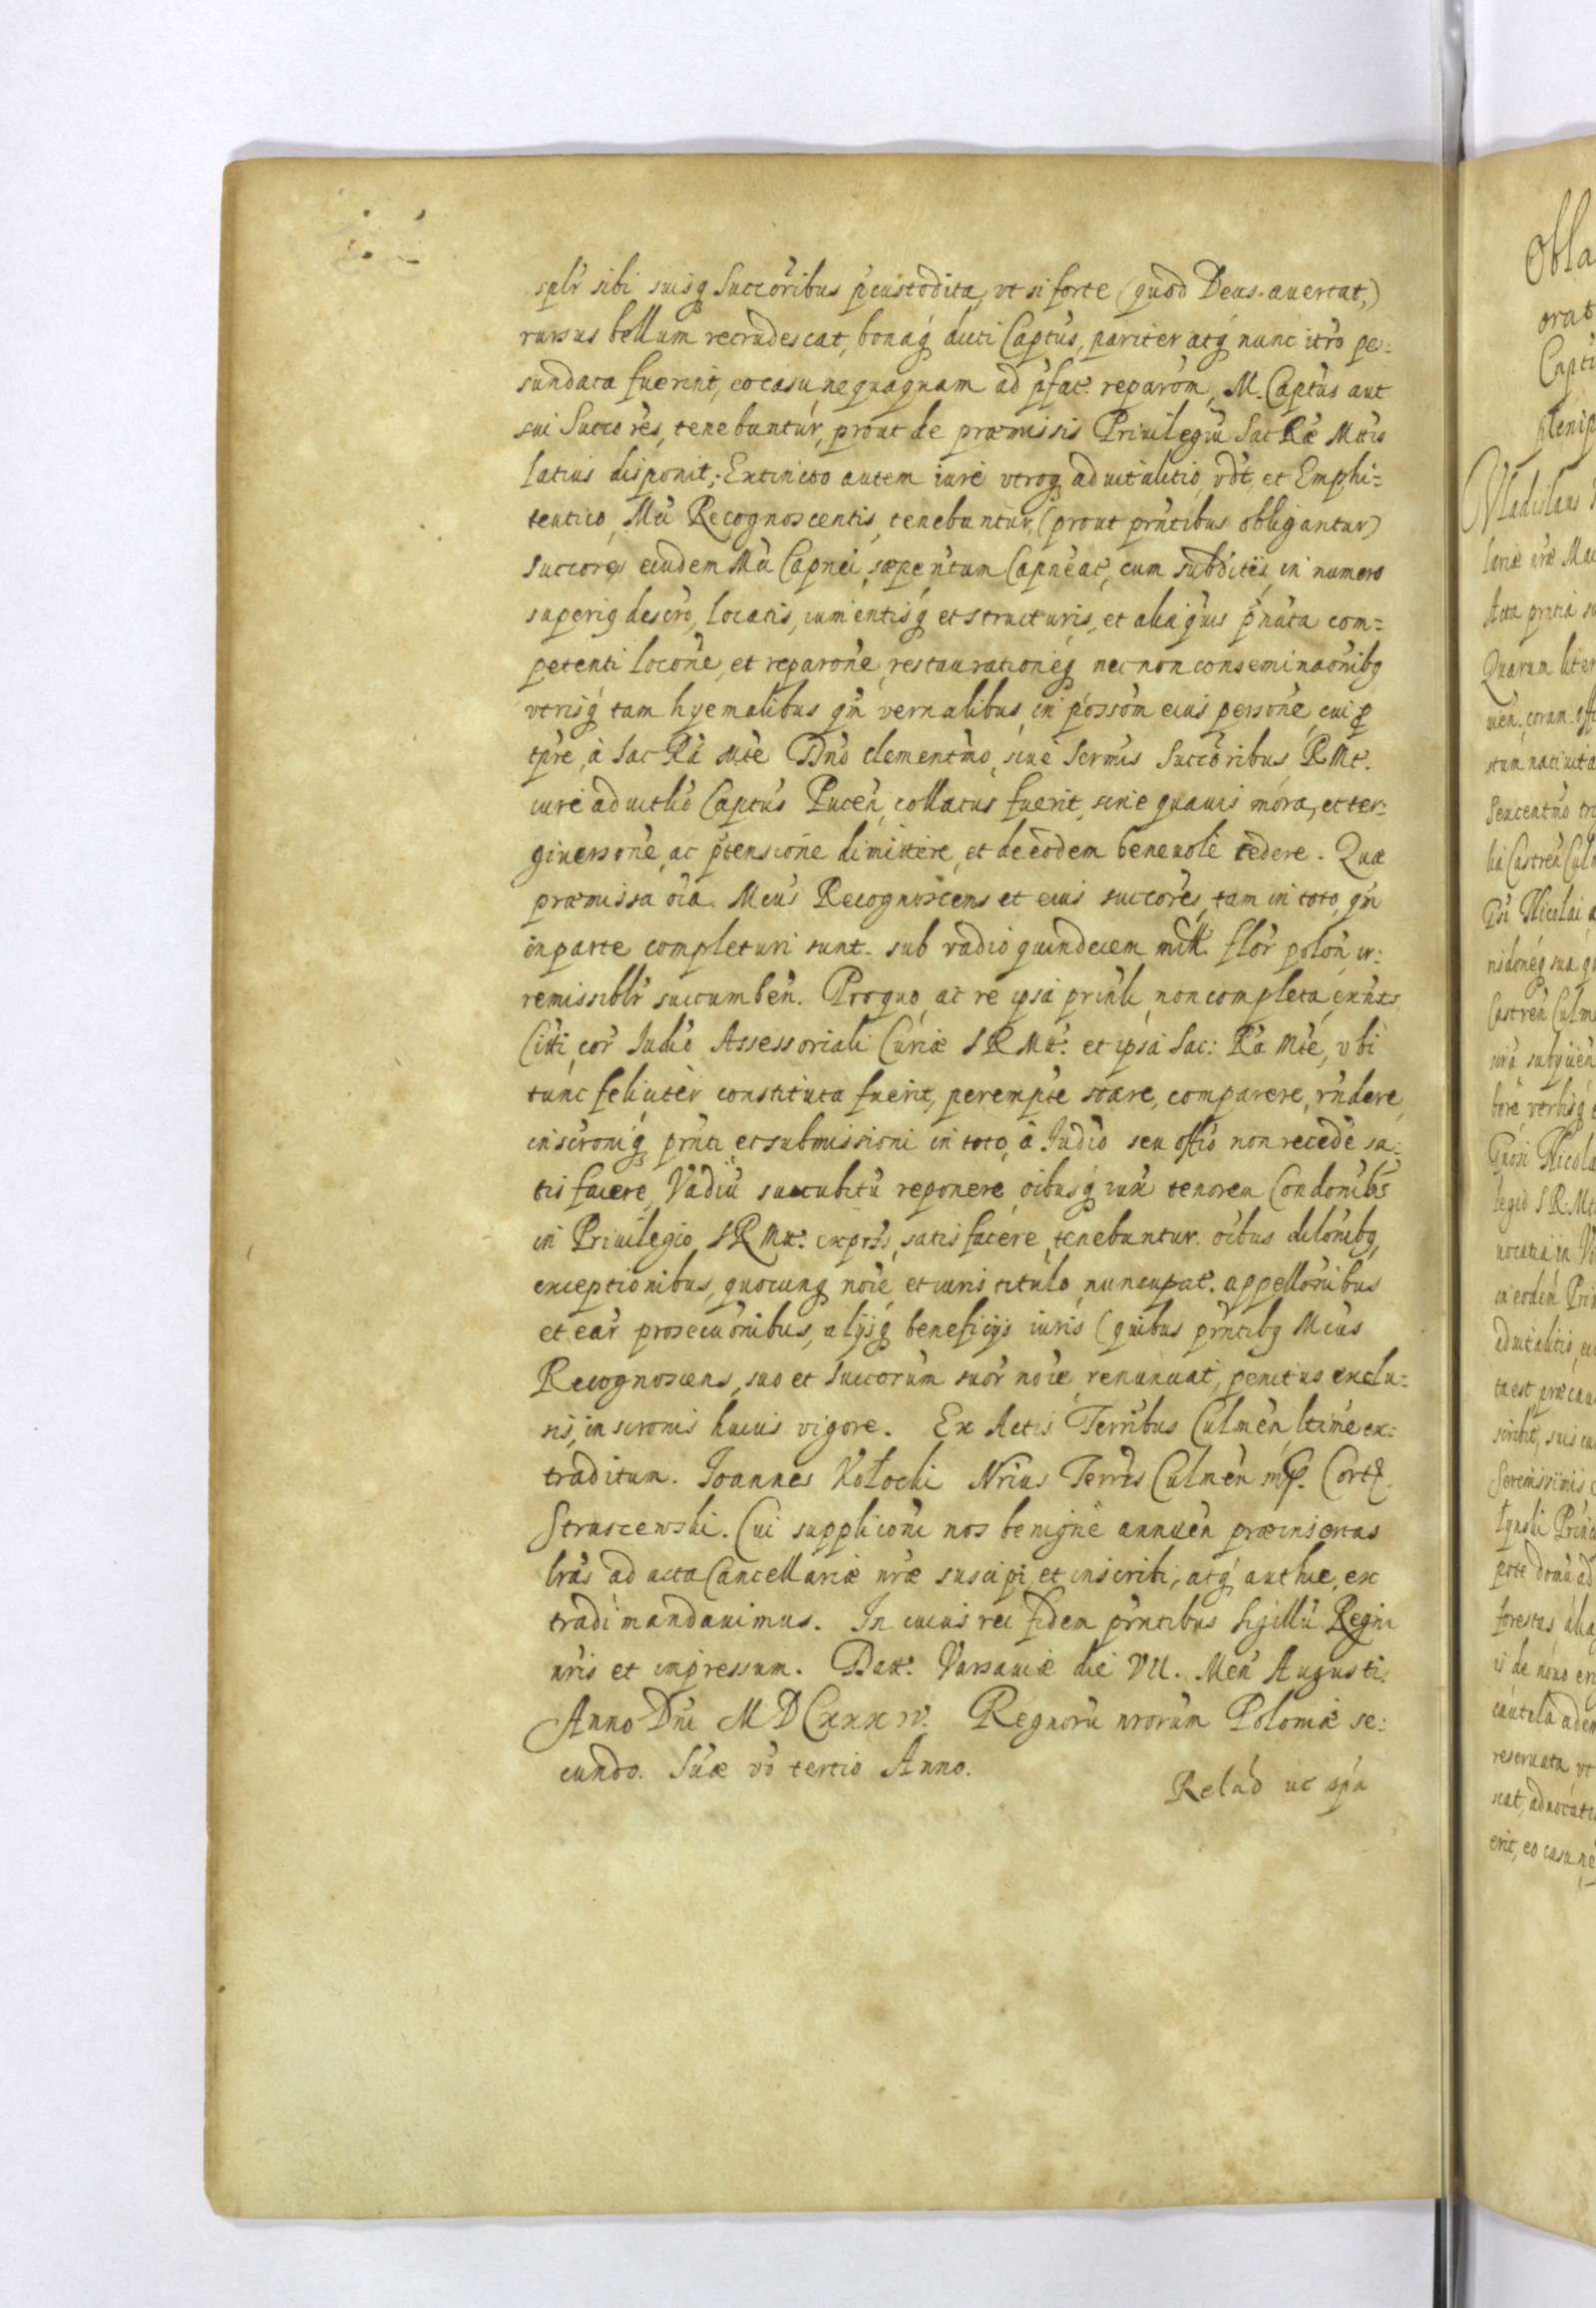 splr sibi suisq Succoribus pcustodita, vt si forte (quod Deus auertat,)
rursus bellum recrudescat, bonaq dicti Captus, pariter atq nunc itro pe:
sundata fuerint, eo casu nequaquam ad pfat. reparom, M. Captus aut
sui Succores, tenebuntur, prout de præmissis Priuilegiu Sac Ræ Mttis
latius disponit; Extincto autem iure vtroq aduitalitio, vdt, et Emphi=
teutico, Mci Recognoscentis, tenebuntur, (prout prntibus obligantur)
succores eiusdem Mci Capnei, sæpe ntum Capneat, cum subditis, in numero
superiq descro, locatis, iumentisq et structuris, et aliaquis pnata com=
petenti locone, et reparone, restaurationeq nec non conseminaonibq
vtrisq tam hyemalibus qm vernalibus, in possom eius persone, cui p
tpre, à Sac Ra Mte Dno clementmo, siue Sermis Succoribus RMt.
iure aduitlio Captus Pucen, collatus fuerit, sine quauis mora, et ter=
giuersone, ac ptensione dimittere, et de eodem beneuole cedere. Quæ
præmissa oia. Mcus Recognoscens et eius succores, tam in toto, qm
in parte completuri sunt. sub vadio quindecem mill. flor polon ir:
remissiblr succumben. Pro quo, ac re ipsa prinli, non completa, exnts
Citti, cor Iudio Assessoriali Curiæ S R Mtt. et ipsa Sac: Ra Mte, vbi
tunc feliciter constituta fuerit, perempte stare, comparere, rndere,
inscroniq prnti et submissioni in toto, à Iudio seu offio non recede sa:
tis facere, Vadiu succubitu reponere, oibusq iux tenorem Condonibs
in Priuilegio S R Mtt. exprss, satis facere, tenebuntur. oibus dilonibq,
exceptionibus, quocunq noie et iuris titulo nuncupat. appellonibus
et ear prosecuonibus, alijsq beneficijs iuris (quibus prntibq Mcus
Recognoscens, suo et Succorum suor noie, renunciat, penitus exclu=
sis, inscronis huius vigore. Ex Actis Terribus Culmen, ltime ex:
traditum. Ioannes Kołocki Nrius Terrs Culmen mp. Corx.
Strascewski. Cui suppliconi nos benigne annuen præinsertas
lras ad acta Cancellariæ nræ suscipi et inscribi, atq authce, ex
tradi mandauimus. In cuius rei fidem prntibus Sigillu Regni
nris et impressum. Datt. Varsauiæ die VII. Men Augusti.
Anno Dni MDCxxxiv. Regnoru nrorum Poloniæ se:
cundo. Suæ vo tertio Anno.
Relao ut spa
Obla
orat
Capti
plenip
Vladislaus
lariæ nræ
Acta prntia
Quarum liter
uen, coram off
stum natiuita
Sexcentmo tri
lii Castren Culm
Gsi Nicolai
Castren Culm
Nicola
legio S R Mt
in eodem Pri
aduitalitio, eu
ta est præcau
scribit, suis
Serenissimis
forestas alia
is de nouo
cautela adem
reseruata vt
scat, aduocati
erit, eo casu ne